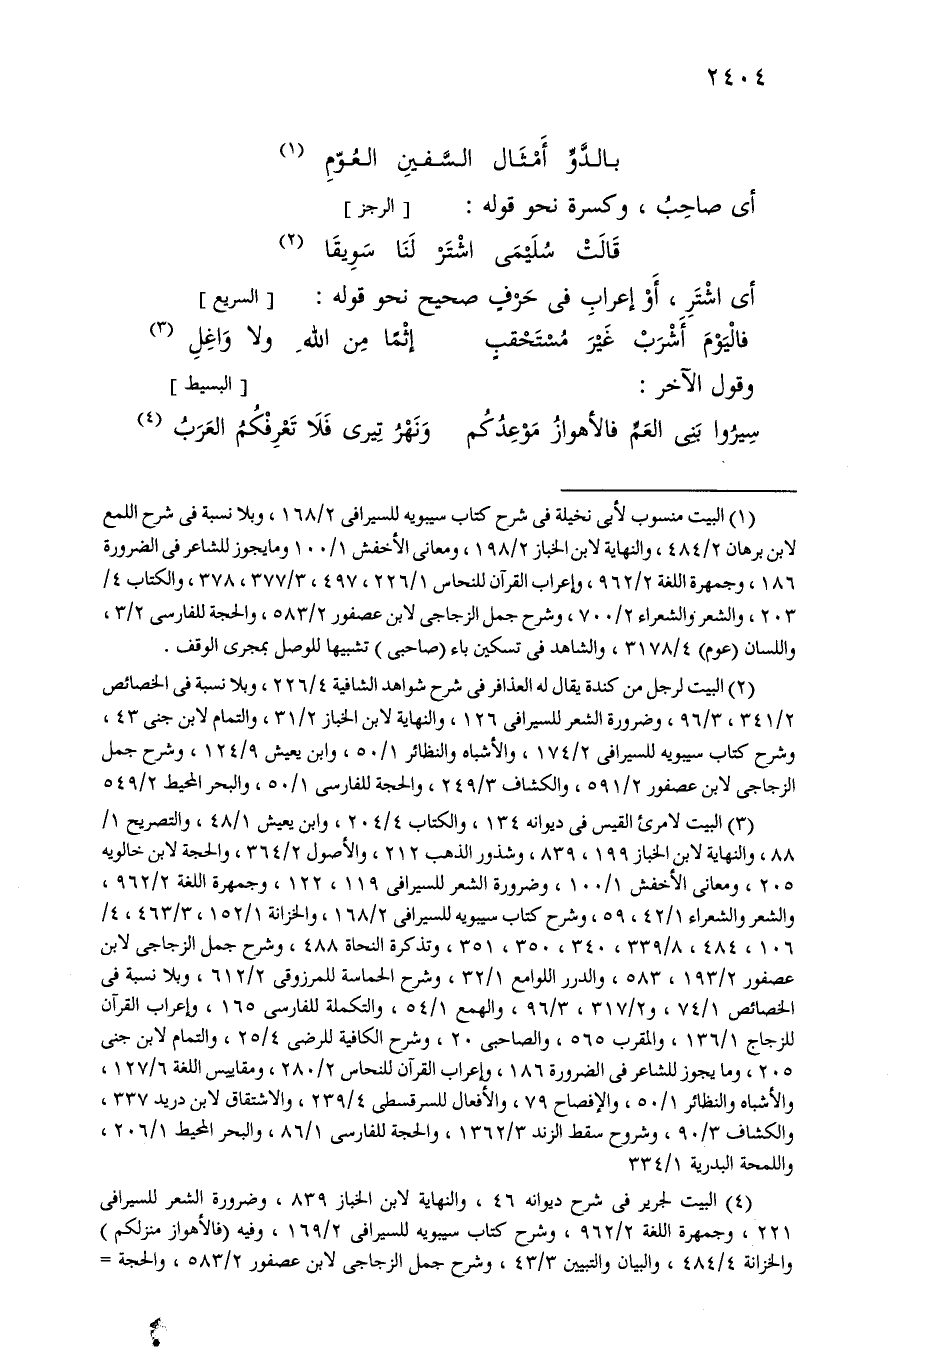 ٢٤٠٤
بالدَّوِّ أَمْثَال السَّفينِ العُوّمِ (١)
أى صاحِبُ ، وكسرة نحو قوله : [ الرجز ]
قَالَتْ سُلَيْمَى اشْتَرْ لَنَا سَوِيقَا (٢)
أى اشْتَرِ ، أَوْ إعرابِ فى حَرْفٍ صحيح نحو قوله : [ السريع ]
فالْيَوْمَ أَشْرَبْ غَيْرَ مُسْتَحْقبٍ إثْمًا مِن اللهِ ولا وَاغِلِ (٣)
وقول الآخر : [ البسيط ]
سِيرُوا بَنِى العَمِّ فالأهوازُ مَوْعِدُكُم وَنَهْرُ تِيرى فَلَا تَعْرِفْكُمُ العَرَبُ (٤)
(١) البيت منسوب لأبى نخيلة فى شرح كتاب سيبويه للسيرافى ١٦٨/٢ ، وبلا نسبة فى شرح اللمع
لابن برهان ٤٨٤/٢ ، والنهاية لابن الخباز ١٩٨/٢ ، ومعانى الأخفش ١٠٠/١ ومايجوز للشاعر فى الضرورة
١٨٦ ، وجمهرة اللغة ٩٦٢/٢ ، وإعراب القرآن للنحاس ٢٢٦/١ ، ٤٩٧ ، ٣٧٧/٣ ، ٣٧٨ ، والكتاب ٤/
٢٠٣ ، والشعر والشعراء ٧٠٠/٢ ، وشرح جمل الزجاجى لابن عصفور ٥٨٣/٢ ، والحجة للفارسى ٣/٢ ،
واللسان (عوم) ٣١٧٨/٤ ، والشاهد فى تسكين باء (صاحبى ) تشبيها للوصل بمجرى الوقف .
(٢) البيت لرجل من كندة يقال له العذافر فى شرح شواهد الشافية ٢٢٦/٤ ، وبلا نسبة فى الخصائص
٣٤١/٢ ، ٩٦/٣ ، وضرورة الشعر للسيرافى ١٢٦ ، والنهاية لابن الخباز ٣١/٢ ، والتمام لابن جنى ٤٣ ،
وشرح كتاب سيبويه للسيرافى ١٧٤/٢ ، والأشباه والنظائر ٥٠/١ ، وابن يعيش ١٢٤/٩ ، وشرح جمل
الزجاجى لابن عصفور ٥٩١/٢ ، والكشاف ٢٤٩/٣ ، والحجة للفارسى ٥٠/١ ، والبحر المحيط ٥٤٩/٢
(٣) البيت لامرئ القيس فى ديوانه ١٣٤ ، والكتاب ٢٠٤/٤ ، وابن يعيش ٤٨/١ ، والتصريح ١/
٨٨ ، والنهاية لابن الخباز ١٩٩ ، ٨٣٩ ، وشذور الذهب ٢١٢ ، والأصول ٣٦٤/٢ ، والحجة لابن خالويه
٢٠٥ ، ومعانى الأخفش ١٠٠/١ ، وضرورة الشعر للسيرافى ١١٩ ، ١٢٢ ، وجمهرة اللغة ٩٦٢/٢ ،
والشعر والشعراء ٤٢/١ ، ٥٩ ، وشرح كتاب سيبويه للسيرافى ١٦٨/٢ ، والخزانة ١٥٢/١ ، ٤٦٣/٣ ، ٤/
١٠٦ ، ٤٨٤ ، ٣٣٩/٨ ، ٣٤٠ ، ٣٥٠ ، ٣٥١ ، وتذكرة النحاة ٤٨٨ ، وشرح جمل الزجاجى لابن
عصفور ١٩٣/٢ ، ٥٨٣ ، والدرر اللوامع ٣٢/١ ، وشرح الحماسة للمرزوقى ٦١٢/٢ ، وبلا نسبة فى
الخصائص ٧٤/١ ، و٣١٧/٢ ، ٩٦/٣ ، والهمع ٥٤/١ ، والتكملة للفارسى ١٦٥ ، وإعراب القرآن
للزجاج ١٣٦/١ ، والمقرب ٥٦٥ ، والصاحبى ٢٠ ، وشرح الكافية للرضى ٢٥/٤ ، والتمام لابن جنى
٢٠٥ ، وما يجوز للشاعر فى الضرورة ١٨٦ ، وإعراب القرآن للنحاس ٢٨٠/٢ ، ومقاييس اللغة ١٢٧/٦ ،
والأشباه والنظائر ٥٠/١ ، والإفصاح ٧٩ ، والأفعال للسرقسطى ٢٣٩/٤ ، والاشتقاق لابن دريد ٣٣٧ ،
والكشاف ٩٠/٣ ، وشروح سقط الزند ١٣٦٢/٣ ، والحجة للفارسى ٨٦/١ ، والبحر المحيط ٢٠٦/١ ،
واللمحة البدرية ٣٣٤/١
(٤) البيت لجرير فى شرح ديوانه ٤٦ ، والنهاية لابن الخباز ٨٣٩ ، وضرورة الشعر للسيرافى
٢٢١ ، وجمهرة اللغة ٩٦٢/٢ ، وشرح كتاب سيبويه للسيرافى ١٦٩/٢ ، وفيه (فالأهواز منزلكم )
والخزانة ٤٨٤/٤ ، والبيان والتبيين ٤٣/٣ ، وشرح جمل الزجاجى لابن عصفور ٥٨٣/٢ ، والحجة =